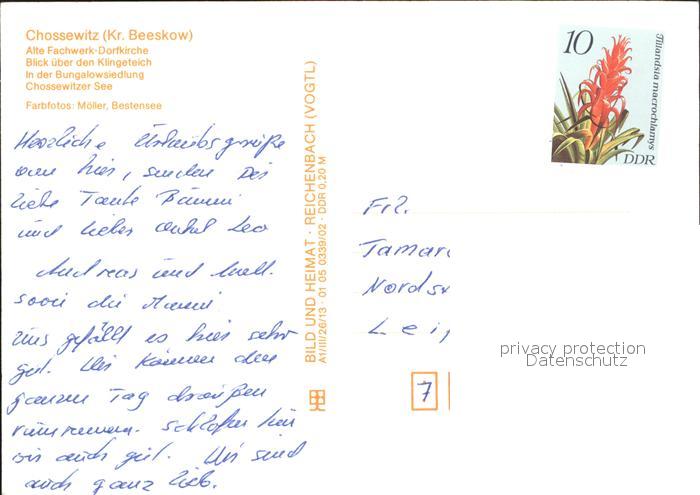 Chossewitz (Kr. Beeskow)
Alte Fachwerk-Dorfkirche
Blick über den Klingeteich
In der Bungalowsiedlung
Chossewitzer See
Farbfotos: Möller, Bestensee
Herzliche Urlaubsgrüße
von hier, senden Dir
liebe Tante Bärmi
und lieber Onkel Leo
Andreas und
sowie die Mammi
uns gefällt es hier sehr
gut. Wir können den
ganzen Tag draußen
rumrennen. schlafen tun
wir auch gut. Wir sind
auch ganz lieb.
BILD UND HEIMAT · REICHENBACH (VOGTL)
A1/III/26/13 · 01 05 0339/02 · DDR 0,20 M
10
Tillandsia macrochlamys
DDR
Frl.
Tamar
Nords
Leip
7
privacy protection
Datenschutz